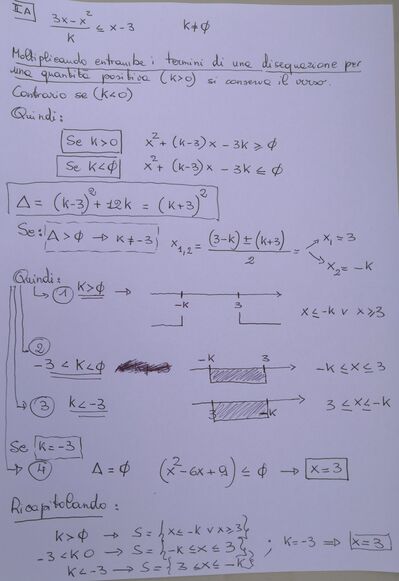 II A) (3x - x²)/k ≤ x - 3   k ≠ ∅
Moltiplicando entrambe i termini di una disequazione per
una quantità positiva (k>0) si conserva il verso.
Contrario se (k<0)
Quindi:
Se k>0   x² + (k-3)x - 3k ≥ ∅
Se k<∅   x² + (k-3)x - 3k ≤ ∅
Δ = (k-3)² + 12k = (k+3)²
Se: Δ>∅ → k ≠ -3   x₁,₂ = ((3-k) ± (k+3))/2 = x₁ = 3
x₂ = -k
Quindi:
① k>∅ → -k 3   x ≤ -k ∨ x ≥ 3
②
-3 < k < ∅   -k 3   -k ≤ x ≤ 3
③ k < -3   3 -k   3 ≤ x ≤ -k
Se k = -3
④ Δ = ∅   (x² - 6x + 9) ≤ ∅ → x = 3
Ricapitolando:
k>∅ → S = {x ≤ -k ∨ x ≥ 3}
-3 < k 0 → S = {-k ≤ x ≤ 3} ; k = -3 ⇒ x = 3
k < -3 → S = {3 ≤ x ≤ -k}